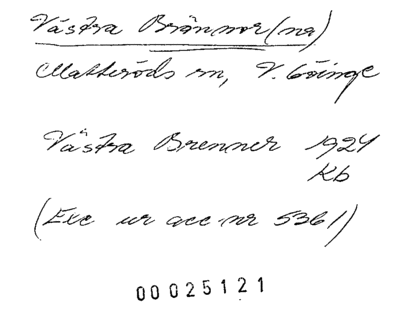 Västra Brännor(na)
Matteröds sn, V. Göinge
Västra Brenner 1924
Kb
(Exc ur acc nr 5361)
00025121